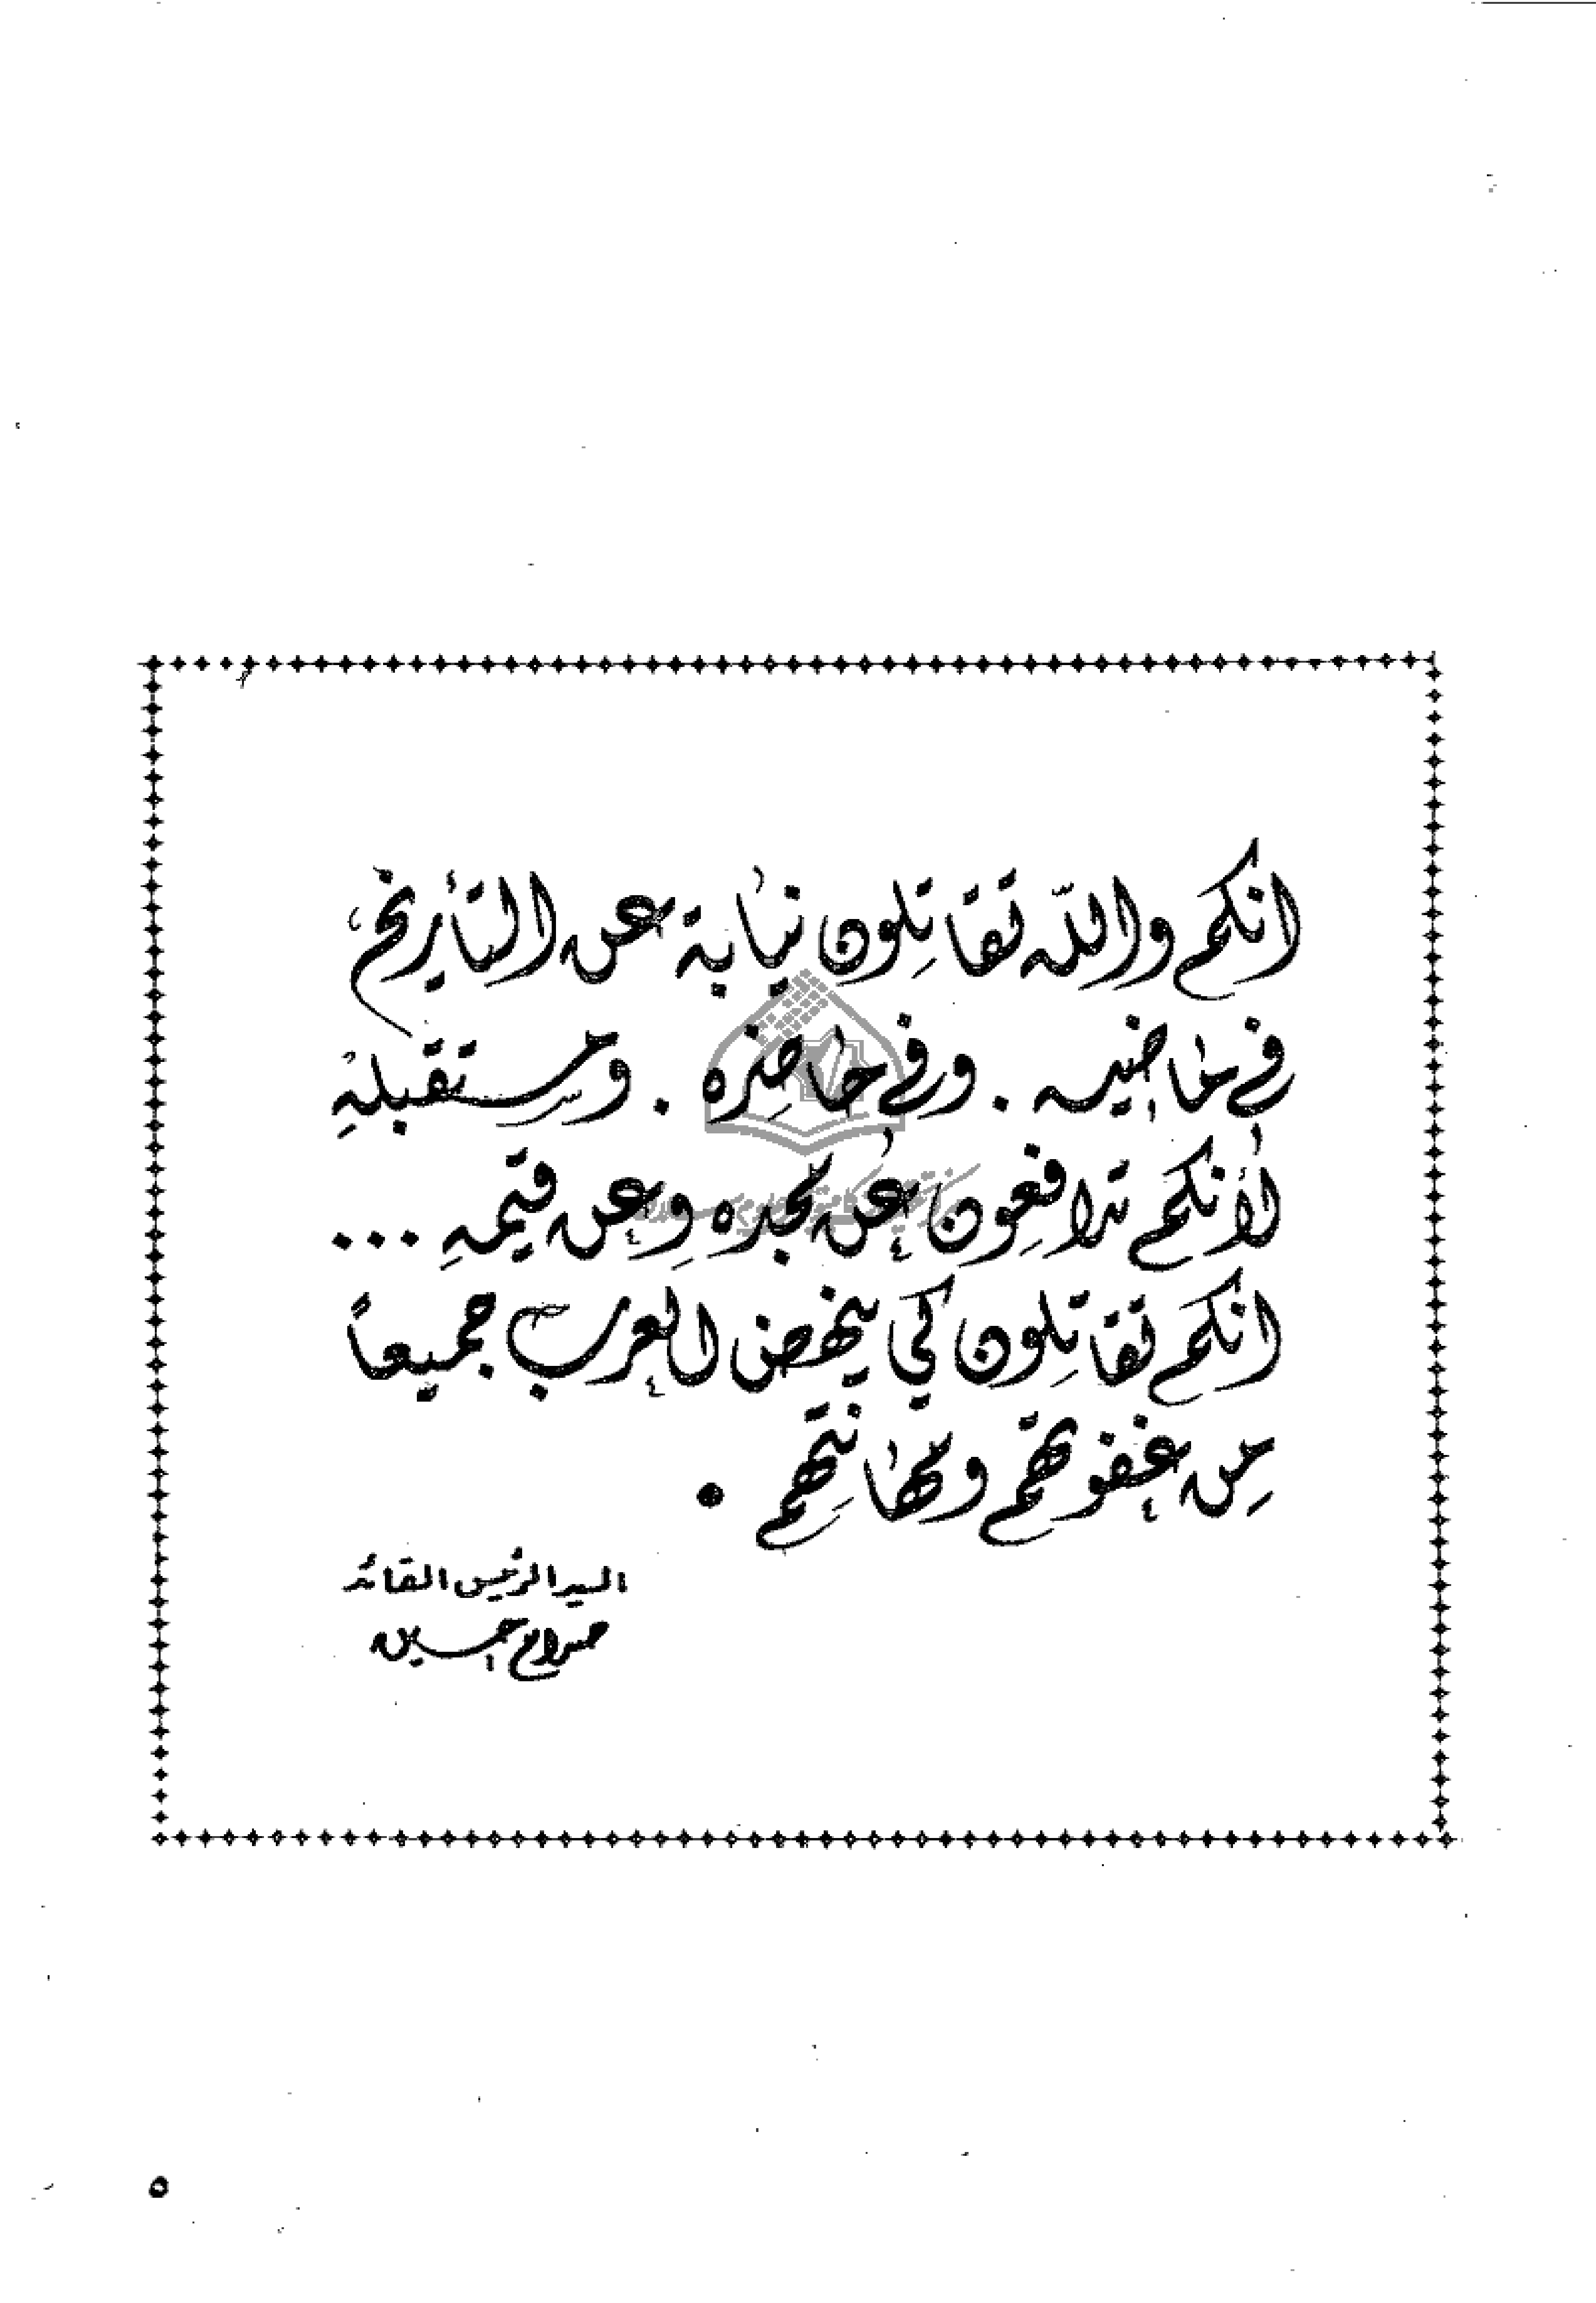 انكم والله تقاتلون نيابة عن التأريخ
في ماضيه . وفي حاضره . ومستقبله
لأنكم تدافعون عن مجده وعن قيمه ...
انكم تقاتلون كي ينهض العرب جميعاً
من غفوتهم ومهانتهم .
السيد الرئيس القائد
صدام حسين
٥